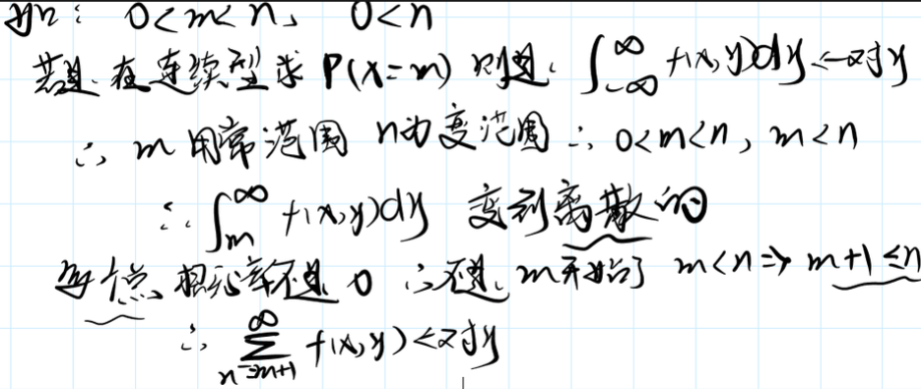 如: 0<m<n, 0<n
若是在连续型求 P(X=m) 则是 ∫_{-∞}^{∞} f(x,y)dy ←对y
∴ m 用常范围 n为变范围 ∴ 0<m<n, m<n
∴ ∫_m^∞ f(x,y)dy 变到离散的
每个点概率不是 0 ∴不是 m开始了 m<n ⇒ m+1≤n
∴ ∑_{n=m+1}^∞ f(x,y) ←对y